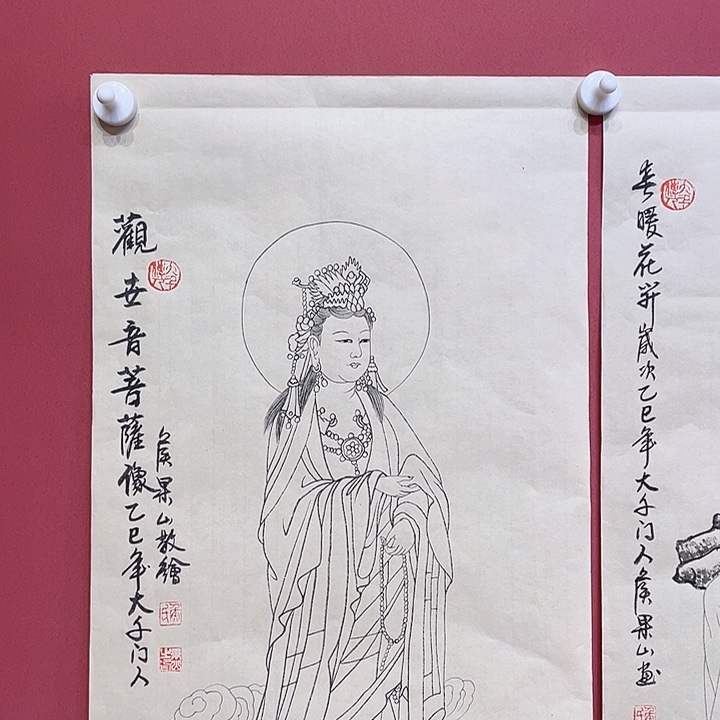 觀世音菩薩像乙巳年大千门人
侯果山敬繪
春暖花开歲次乙巳年大千门人侯果山画